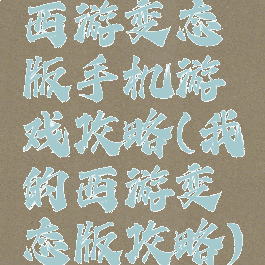 西游变态
版手机游
戏攻略(我
的西游变
态版攻略)